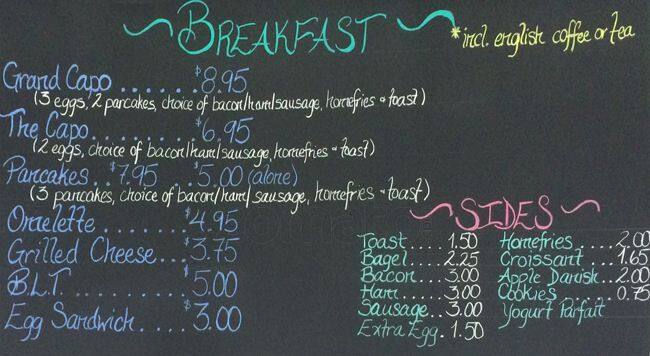 BREAKFAST
*incl. english coffee or tea
Grand Capo ...... $8.95
(3 eggs, 2 pancakes, choice of bacon/ham/sausage, homefries + toast)
The Capo ....... $6.95
(2 eggs, choice of bacon/ham/sausage, homefries + toast)
Pancakes .. $7.95 .. $5.00 (alone)
(3 pancakes, choice of bacon/ham/sausage, homefries + toast)
Omelette ....... $4.95
Grilled Cheese... $3.75
B.L.T. .......... $5.00
Egg Sandwich.... $3.00
SIDES
Toast.... 1.50
Bagel.... 2.25
Bacon.... 3.00
Ham..... 3.00
Sausage.. 3.00
Extra Egg. 1.50
Homefries .... 2.00
Croissant .... 1.65
Apple Danish... 2.00
Cookies ..... 0.75
Yogurt Parfait